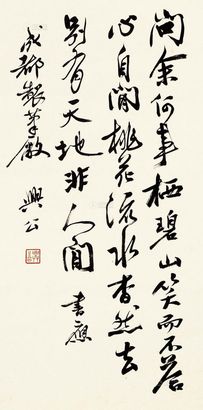 問余何事栖碧山笑而不答
心自閒桃花流水杳然去
別有天地非人間 書應
成都 興公